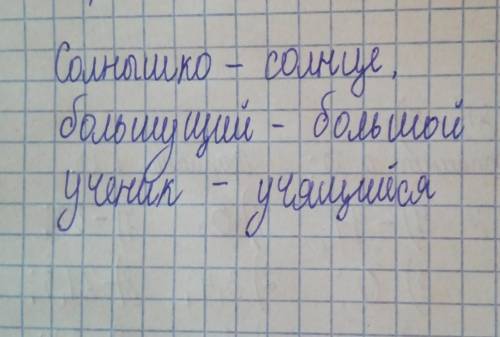 Солнышко - солнце,
большущий - большой
ученик - учащийся